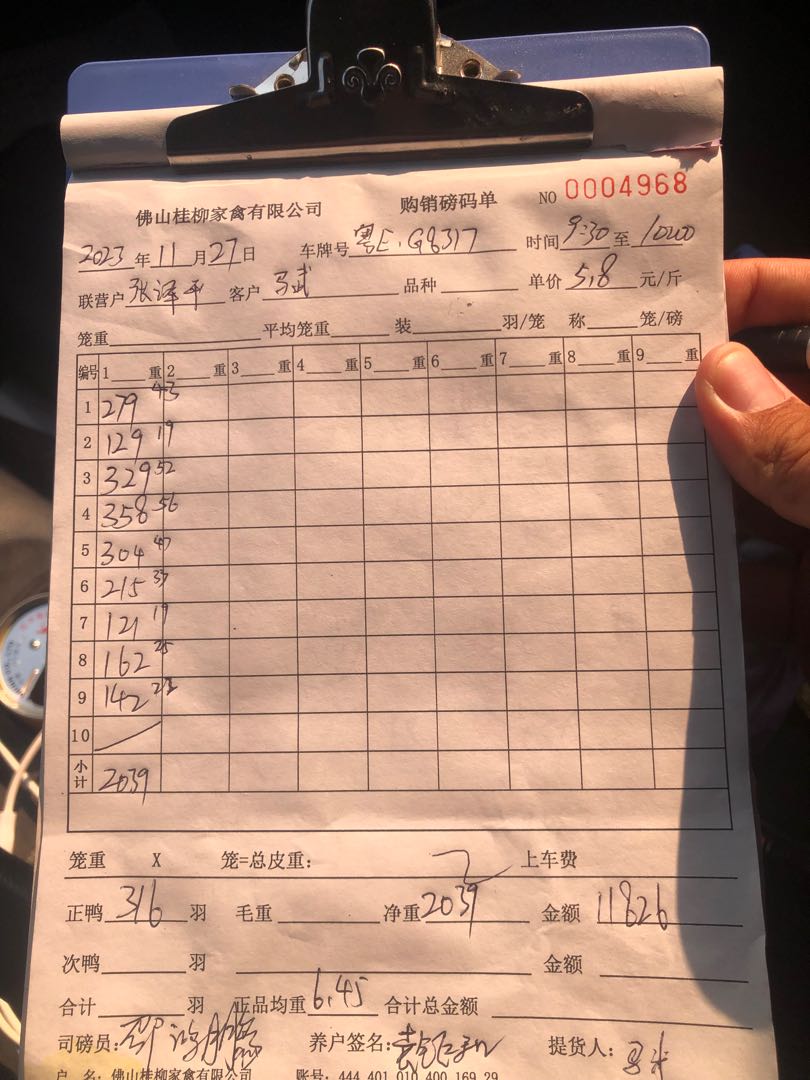 佛山桂柳家禽有限公司 购销磅码单 NO 0004968
2023年11月27日 车牌号 粤E·G8317 时间 9:30 至 10:00
联营户 张泽平 客户 马武 品种 单价 5.8 元/斤
笼重 平均笼重 装 羽/笼 称 笼/磅
编号 1 重 2 重 3 重 4 重 5 重 6 重 7 重 8 重 9 重
1 279 43
2 129 19
3 329 52
4 358 56
5 304 47
6 215 33
7 121 19
8 162 25
9 142 23
10
小计 2039
笼重 X 笼=总皮重: 上车费
正鸭 316 羽 毛重 净重 2039 金额 11826
次鸭 羽 金额
合计 羽 正品均重 6.45 合计总金额
司磅员: 养户签名: 提货人:
户 名: 佛山桂柳家禽有限公司 账号: 444 401 010 400 169 29